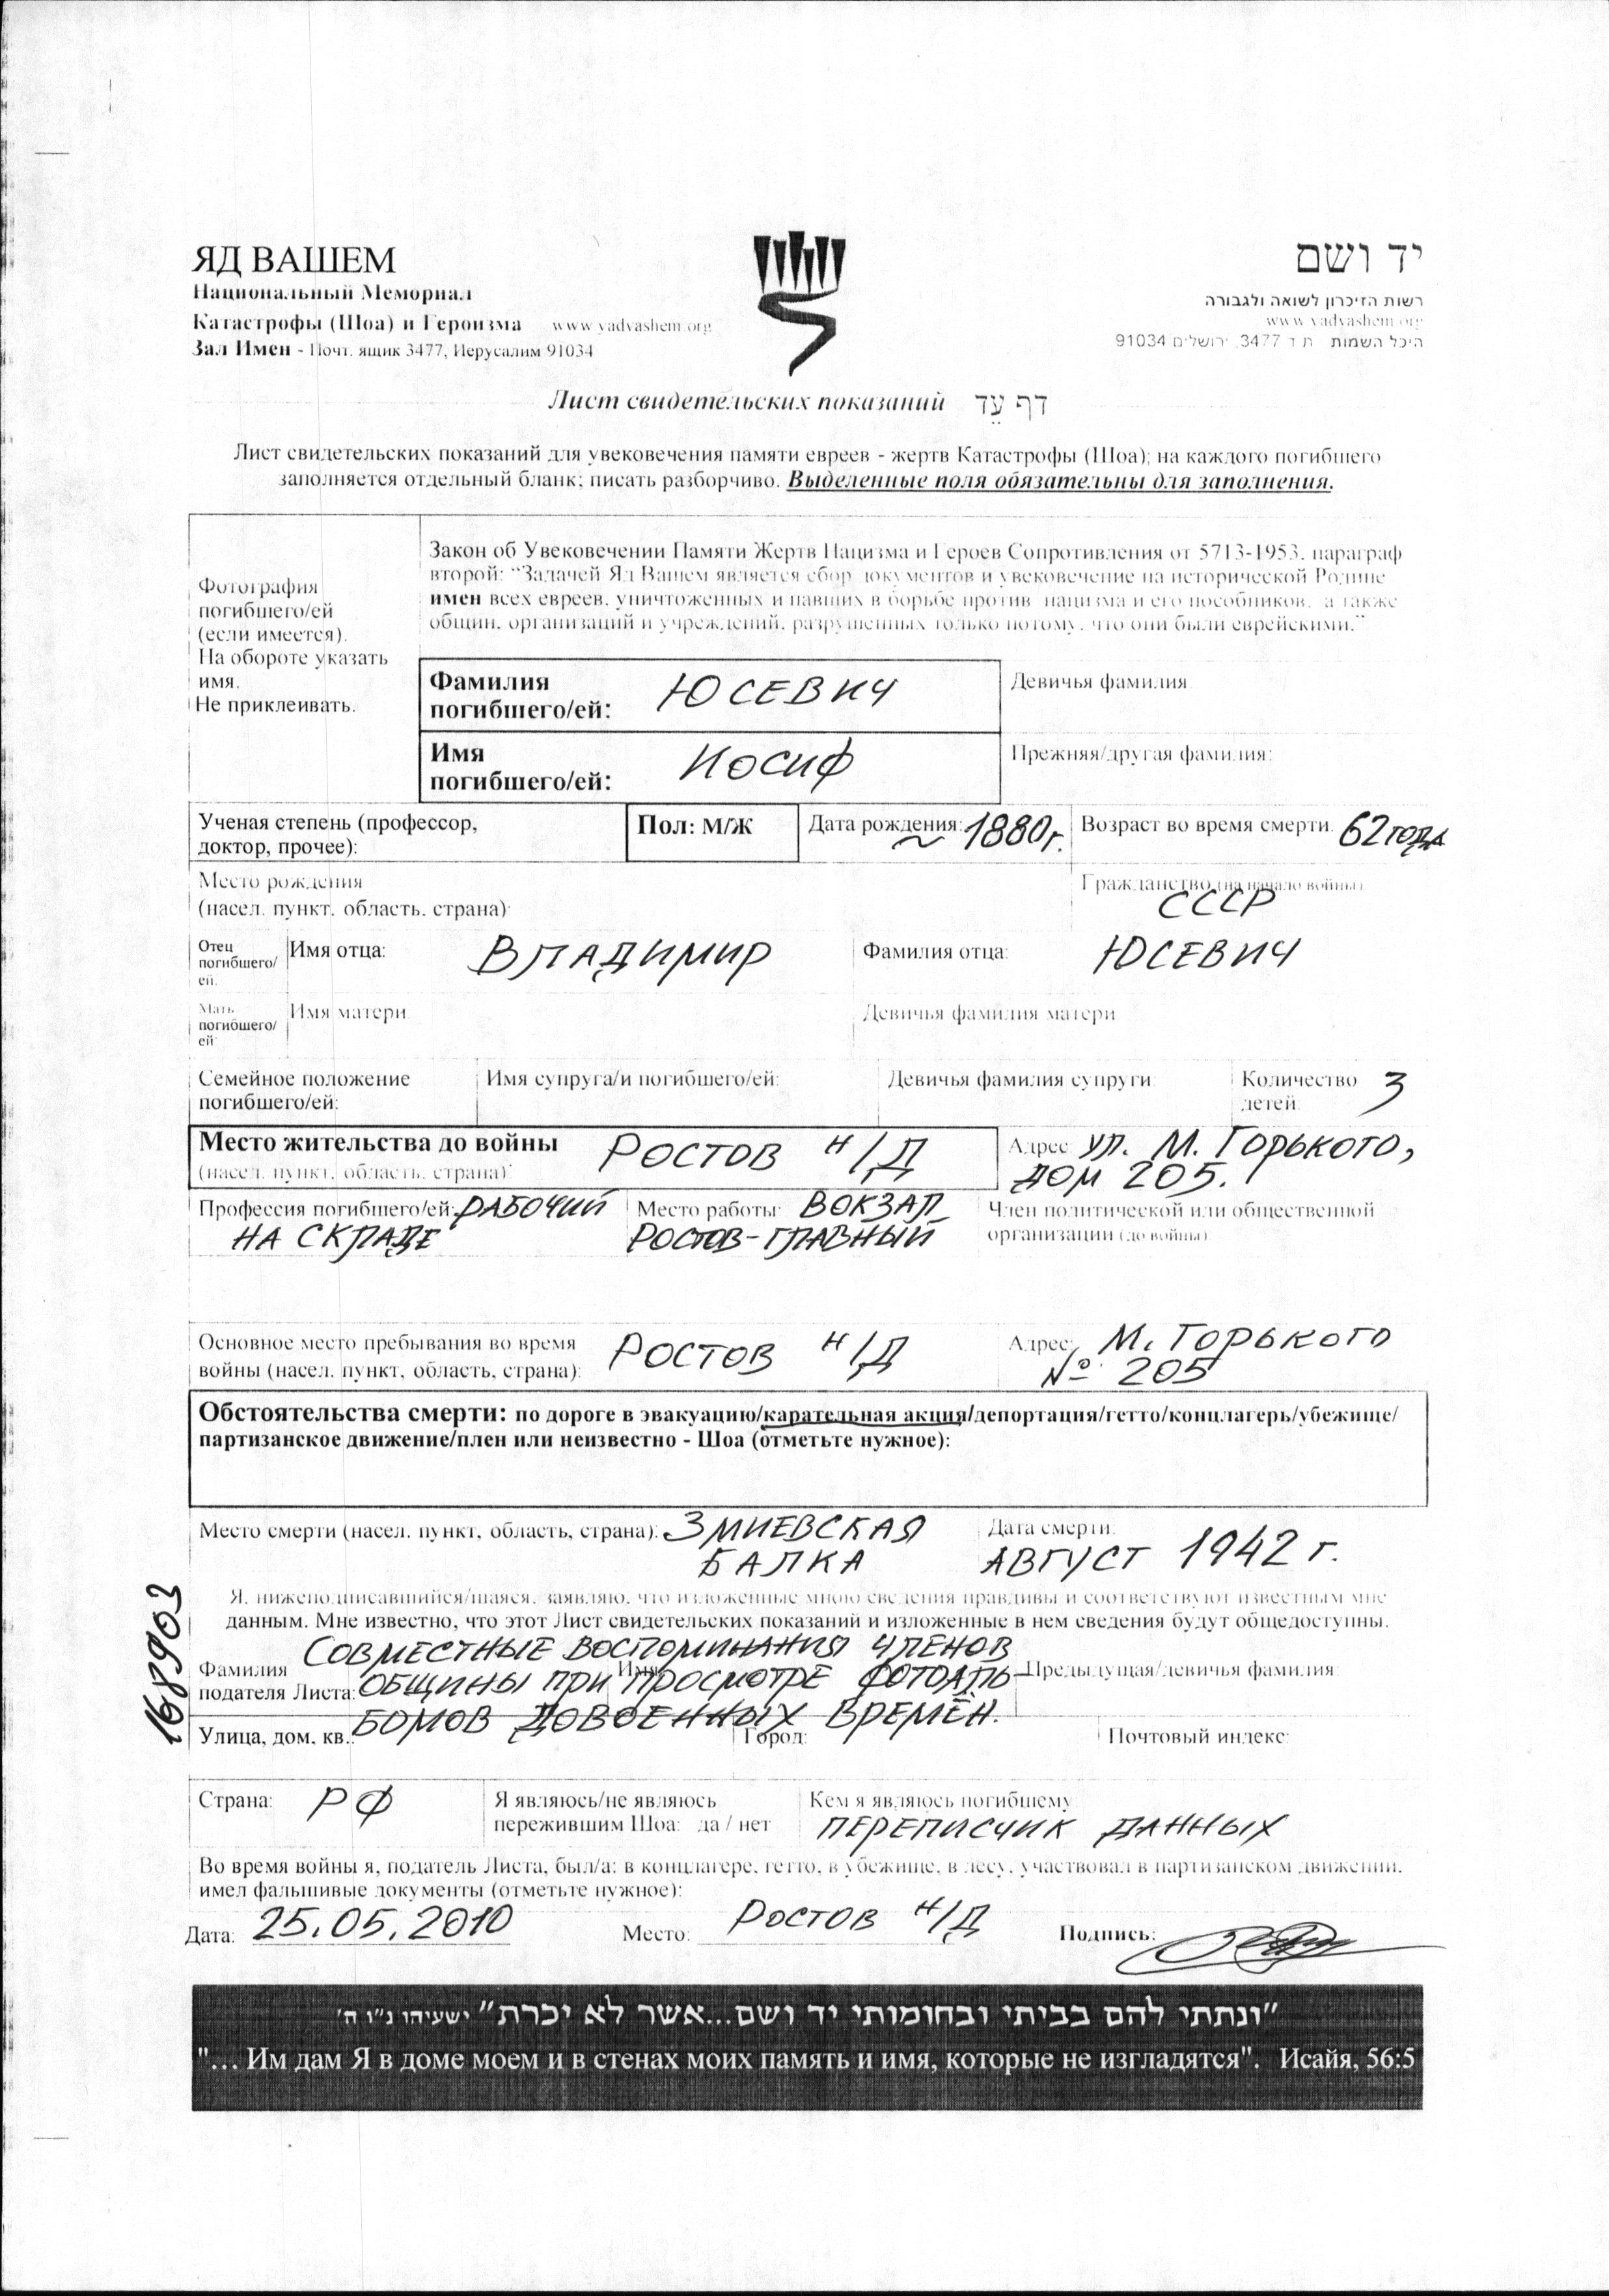 ЯД ВАШЕМ
Национальный Мемориал
Катастрофы (Шоа) и Героизма www.yadvashem.org
Зал Имен - Почт. ящик 3477, Иерусалим 91034
יד ושם
רשות הזיכרון לשואה ולגבורה
www.yadvashem.org
היכל השמות ת ד 3477, ירושלים 91034
Лист свидетельских показаний דף עֵד
Лист свидетельских показаний для увековечения памяти евреев - жертв Катастрофы (Шоа); на каждого погибшего
заполняется отдельный бланк; писать разборчиво. Выделенные поля обязательны для заполнения.
Фотография
погибшего/ей
(если имеется).
На обороте указать
имя.
Не приклеивать.
Закон об Увековечении Памяти Жертв Нацизма и Героев Сопротивления от 5713-1953, параграф
второй: "Задачей Яд Вашем является сбор документов и увековечение на исторической Родине
имен всех евреев, уничтоженных и павших в борьбе против нацизма и его пособников, а также
общин, организаций и учреждений, разрушенных только потому, что они были еврейскими."
Фамилия
погибшего/ей: ЮСЕВИЧ
Девичья фамилия
Имя
погибшего/ей: ИОСИФ
Прежняя/другая фамилия:
Ученая степень (профессор,
доктор, прочее):
Пол: М/Ж
Дата рождения: ~ 1880г.
Возраст во время смерти: 62 года
Место рождения
(насел. пункт, область, страна):
Гражданство (на начало войны)
СССР
Отец
погибшего/
ей:
Имя отца: ВЛАДИМИР
Фамилия отца: ЮСЕВИЧ
Мать
погибшего/
ей:
Имя матери
Девичья фамилия матери
Семейное положение
погибшего/ей:
Имя супруга/и погибшего/ей:
Девичья фамилия супруги
Количество
детей: 3
Место жительства до войны
(насел. пункт, область, страна): РОСТОВ Н/Д
Адрес: ул. М. ГОРЬКОГО,
ДОМ 205.
Профессия погибшего/ей: РАБОЧИЙ
НА СКЛАДЕ
Место работы: ВОКЗАЛ
РОСТОВ-ГЛАВНЫЙ
Член политической или общественной
организации (до войны)
Основное место пребывания во время
войны (насел. пункт, область, страна): РОСТОВ Н/Д
Адрес: М. ГОРЬКОГО
№ 205
Обстоятельства смерти: по дороге в эвакуацию/карательная акция/депортация/гетто/концлагерь/убежище/
партизанское движение/плен или неизвестно - Шоа (отметьте нужное):
Место смерти (насел. пункт, область, страна): ЗМИЕВСКАЯ
БАЛКА
Дата смерти:
АВГУСТ 1942 г.
168903
Я, нижеподписавшийся/шаяся, заявляю, что изложенные мною сведения правдивы и соответствуют известным мне
данным. Мне известно, что этот Лист свидетельских показаний и изложенные в нем сведения будут общедоступны.
СОВМЕСТНЫЕ ВОСПОМИНАНИЯ ЧЛЕНОВ
Фамилия
подателя Листа: ОБЩИНЫ ПРИ ПРОСМОТРЕ ФОТОАЛЬ-
Имя:
Предыдущая/девичья фамилия:
БОМОВ ДОВОЕННЫХ ВРЕМЁН.
Улица, дом, кв.:
Город:
Почтовый индекс:
Страна: РФ
Я являюсь/не являюсь
пережившим Шоа: да / нет
Кем я являюсь погибшему
ПЕРЕПИСЧИК ДАННЫХ
Во время войны я, податель Листа, был/а: в концлагере, гетто, в убежище, в лесу, участвовал в партизанском движении,
имел фальшивые документы (отметьте нужное):
Дата: 25.05.2010 Место: РОСТОВ Н/Д Подпись:
"ונתתי להם בביתי ובחומותי יד ושם...אשר לא יכרת" ישעיהו נ"ו ה'
"... Им дам Я в доме моем и в стенах моих память и имя, которые не изгладятся". Исайя, 56:5